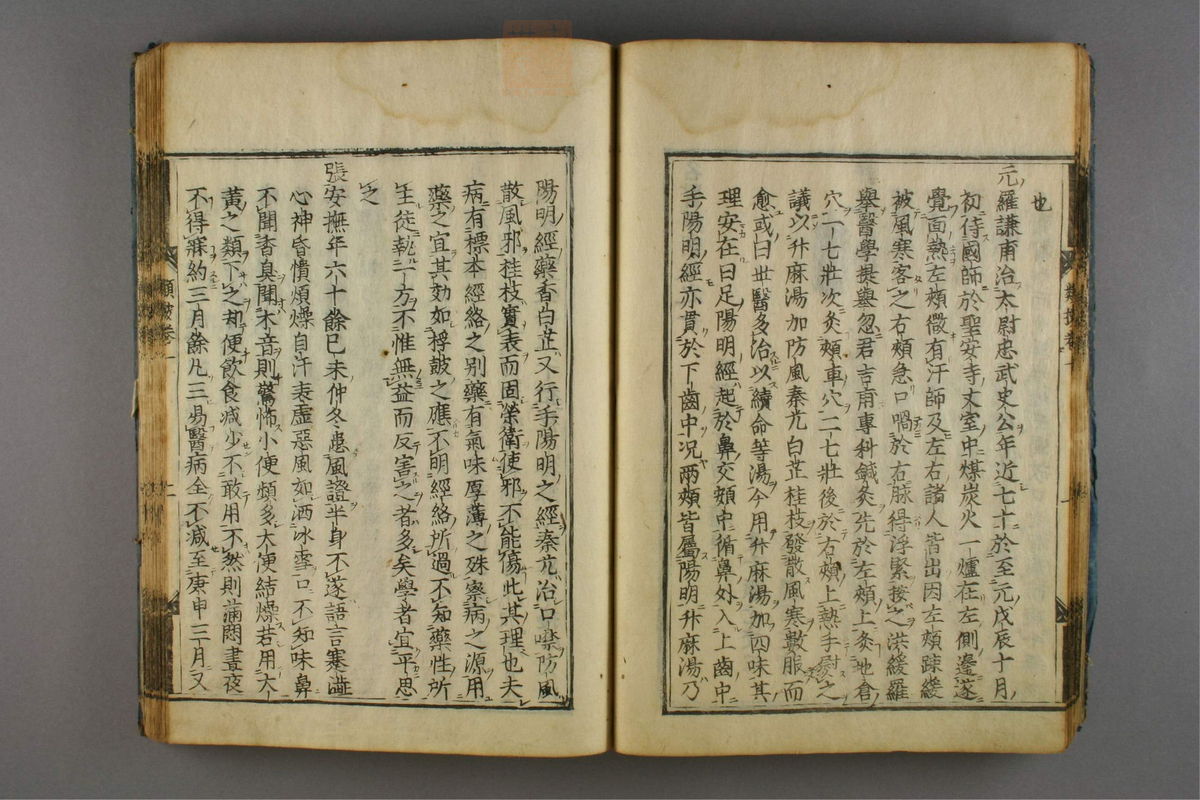 也
元羅謙甫治太尉忠武史公年近七十於至元戊辰十月
初侍國師於聖安寺丈室中煤炭火一爐在左側邊遂
覺面熱左頰微有汗師及左右諸人皆出因左頰踈緩
被風寒客之右頰急口喎於右脉得浮緊按之洪緩羅
舉醫學提舉忽君吉甫專科鍼灸先於左頰上灸地倉
穴一七壯次灸頰車穴二七壯後於右頰上熱手熨之
議以升麻湯加防風秦艽白芷桂枝發散風寒數服而
愈或曰世醫多治以續命等湯今用升麻湯加四味其
理安在曰足陽明經起於鼻交頞中循鼻外入上齒中
手陽明經亦貫於下齒中况兩頰皆屬陽明升麻湯乃
陽明經藥香白芷又行手陽明之經秦艽治口噤防風
散風邪桂枝實表而固榮衛使邪不能傷此其理也夫
病有標本經絡之别藥有氣味厚薄之殊察病之源用
藥之宜其効如桴皷之應不明經絡所過不知藥性所
在徒執一方不惟無益而反害之者多矣學者宜平思
之
張安撫年六十餘己未仲冬患風證半身不遂語言蹇澁
心神昏憒煩燥自汗表虛惡風如洒冰雪口不知味鼻
不聞香臭聞木音則驚怖小便頻多大便結燥若用大
黄之類下之却便飲食减少不敢用不然則滿悶晝夜
不得寐約三月餘凡三易醫病全不减至庚申三月又
類按卷一